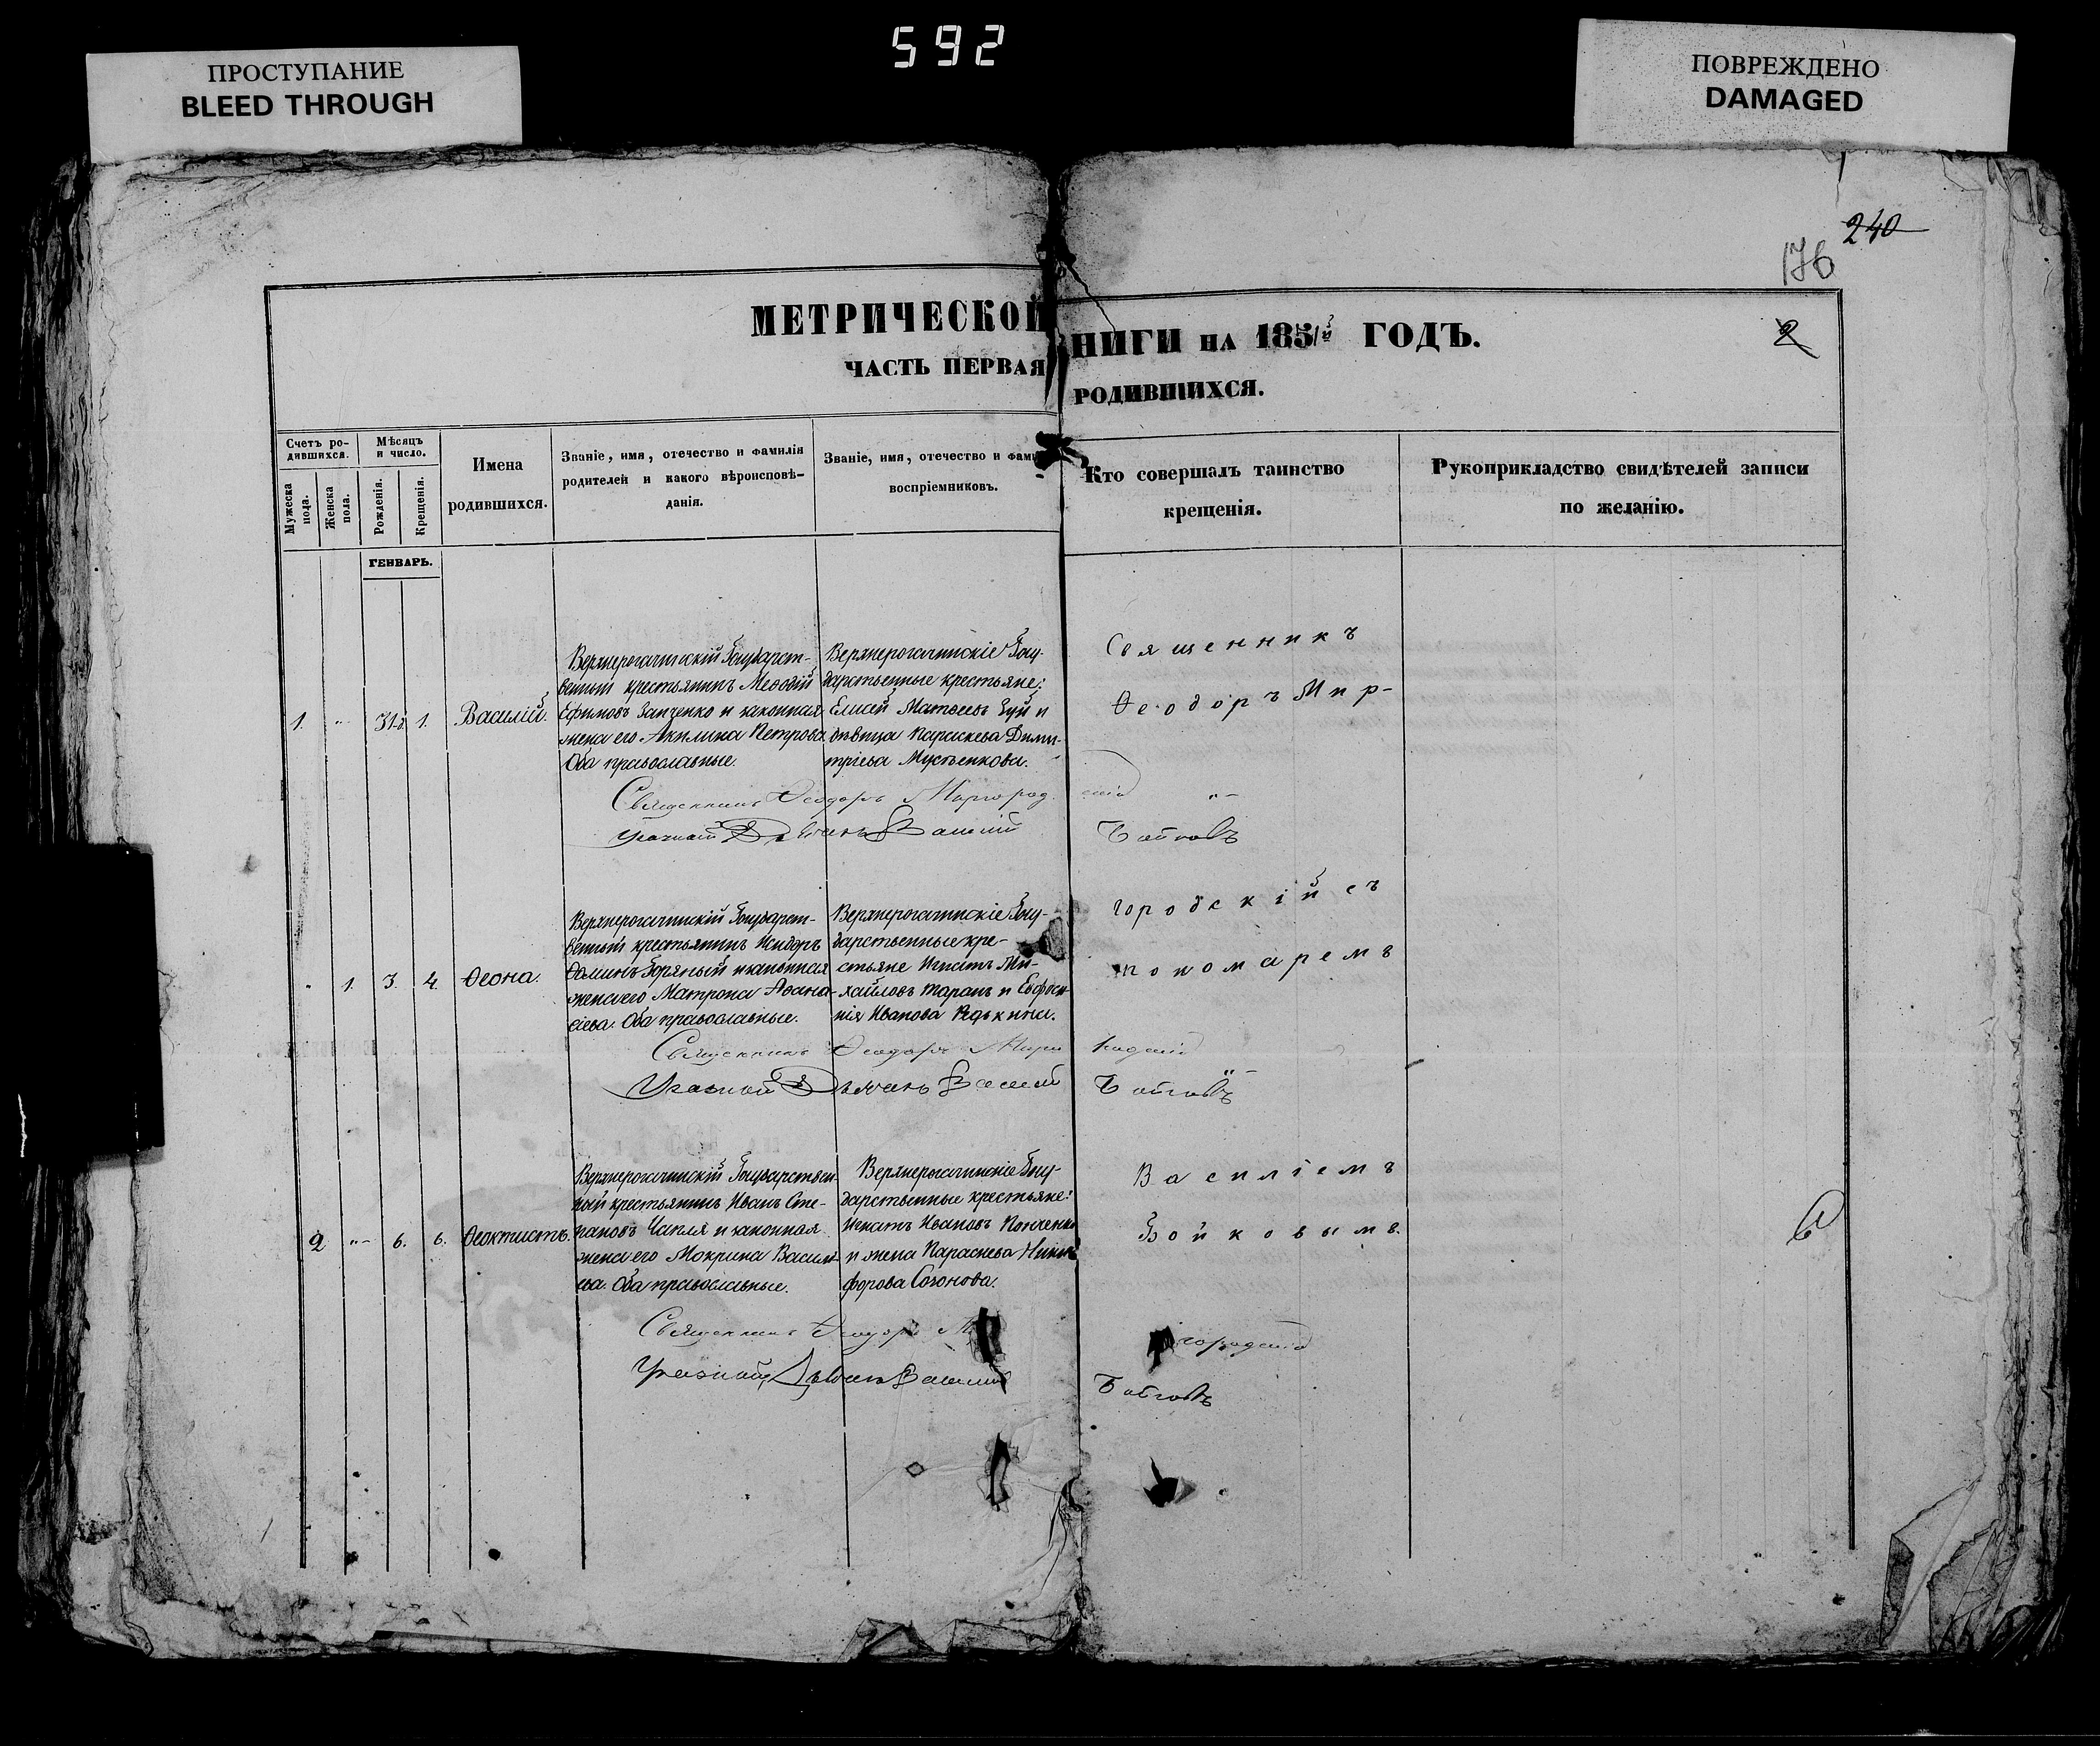 592
ПРОСТУПАНИЕ
BLEED THROUGH
ПОВРЕЖДЕНО
DAMAGED
240
176
МЕТРИЧЕСКОЙ
НИГИ НА 1851й ГОДЪ.
2
ЧАСТЬ ПЕРВАЯ
РОДИВШИХСЯ.
Счетъ ро-
дившихся.
Мѣсяцъ
и число.
Мужеска
пола.
Женска
пола.
Рожденія.
Крещенія.
Имена
родившихся.
Званіе, имя, отечество и фамилія
родителей и какого вѣроисповѣ-
данія.
Званіе, имя, отечество и фами
воспріемниковъ.
Кто совершалъ таинство
крещенія.
Рукоприкладство свидѣтелей записи
по желанію.
ГЕНВАРЬ.
1. " 31. 1. Василій.
Верхнерогачинскій Государст-
венный крестьянинъ Меѳодій
Ефимовъ Занченко и законная
жена его Акилина Петрова
Оба православные.
Верхнерогачинскіе Госу-
дарственные крестьяне:
Елисей Матвеевъ Зуй и
дѣвица Параскева Дими-
тріева Мустенкова.
Священникъ
Ѳеодоръ Мир-
Священникъ Ѳеодоръ Миргород скій
Указный Дьячекъ Василій Бойковъ
" 1. 3. 4. Ѳеона.
Верхнерогачинскій Государст-
венный крестьянинъ Исидоръ
Ѳоминъ Горяный и законная
жена его Матрона Аѳана-
сіева. Оба православные.
Верхнерогачинскіе Госу-
дарственные кре-
стьяне Игнатъ Ми-
хайловъ Таранъ и Евфроси-
нія Иванова Редькина.
городскій съ
пономаремъ
Священникъ Ѳеодоръ Мирго родскій
Указный Дьячекъ Василій Бойковъ
2 " 6. 6. Ѳеоктистъ.
Верхнерогачинскій Государствен-
ный крестьянинъ Иванъ Сте-
пановъ Чапля и законная
жена его Мокрина Василь-
ева. Оба православные.
Верхнерогачинскіе Госу-
дарственные крестьяне:
Игнатъ Ивановъ
и жена Параскева Ники-
форова Созонова.
Василіемъ
Бойковымъ.
Священникъ Ѳеодоръ Ми городскій
Указный Дьячекъ Василій Бойковъ